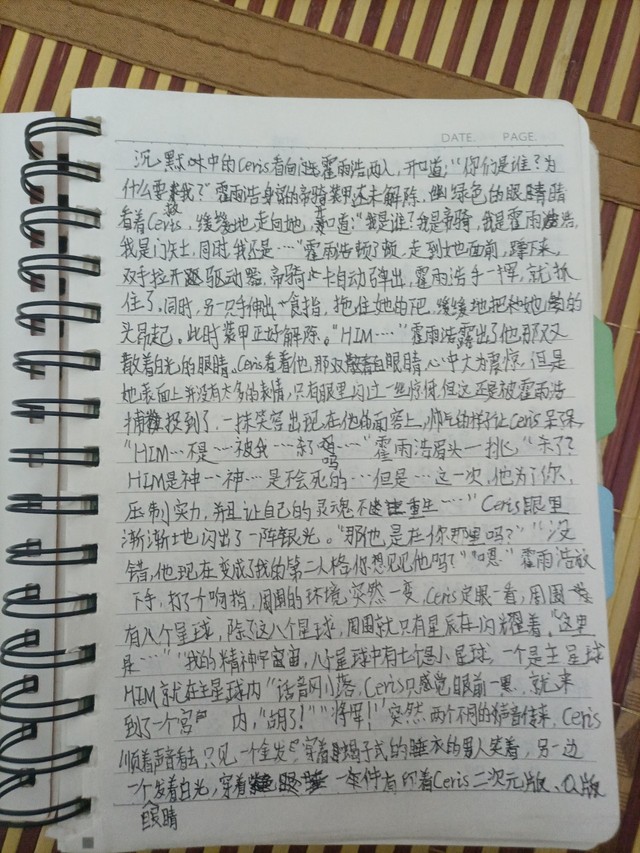 DATE. PAGE.
沉默中的Ceris看向霍雨浩两人，开口道："你们是谁？为
什么要救我？"霍雨浩身上的帝骑装甲还未解除，幽绿色的眼睛
看着Ceris，缓缓地走向她，开口道："我是谁？我是帝骑，我是霍雨浩，
我是门矢士，同时我还是……"霍雨浩顿了顿，走到她面前，蹲下来，
双手拉开驱动器，帝骑卡自动弹出，霍雨浩手一挥，就抓
住了，同时，另一只手伸出食指，抱住她的下巴，缓缓地把她的
头昂起。此时装甲正好解除。"HIM……"霍雨浩露出了他那双
散着白光的眼睛。Ceris看着他，那双眼睛，心中大为震惊，但是
她表面上并没有太多的表情，只有眼里闪过一些惊讶，但这还是被霍雨浩
捕捉到了，一抹笑容出现在他的面容上，帅气的样子让Ceris呆呆
"HIM…不是…被我…杀了吗……"霍雨浩眉头一挑，"杀了？
HIM是神……神……是不会死的…但是…这一次，他为了你，
压制实力，并且让自己的灵魂不进重生……"Ceris眼里
渐渐地闪出了一阵银光。"那他是在你那里吗？""没
错，他现在变成了我的第二人格，你想见见他吗？""嗯"霍雨浩放
下手，打了个响指，周围的环境突然一变，Ceris定眼一看，周围
有八个星球，除了这八个星球，周围就只有星辰在闪耀着。"这里
是……""我的精神宇宙，八个星球中有七个是小星球，一个是主星球
HIM就在主星球内"话音刚落，Ceris只感觉眼前一黑，就来
到了一个宫内，"胡了！""将军！"突然，两个不同的声音传来，Ceris
顺着声音看去，只见一个金发，穿着蝎子式的睡衣的男人笑着，另一边
一个发着白光，穿着一条件有印着Ceris二次元版、Q版
眼睛